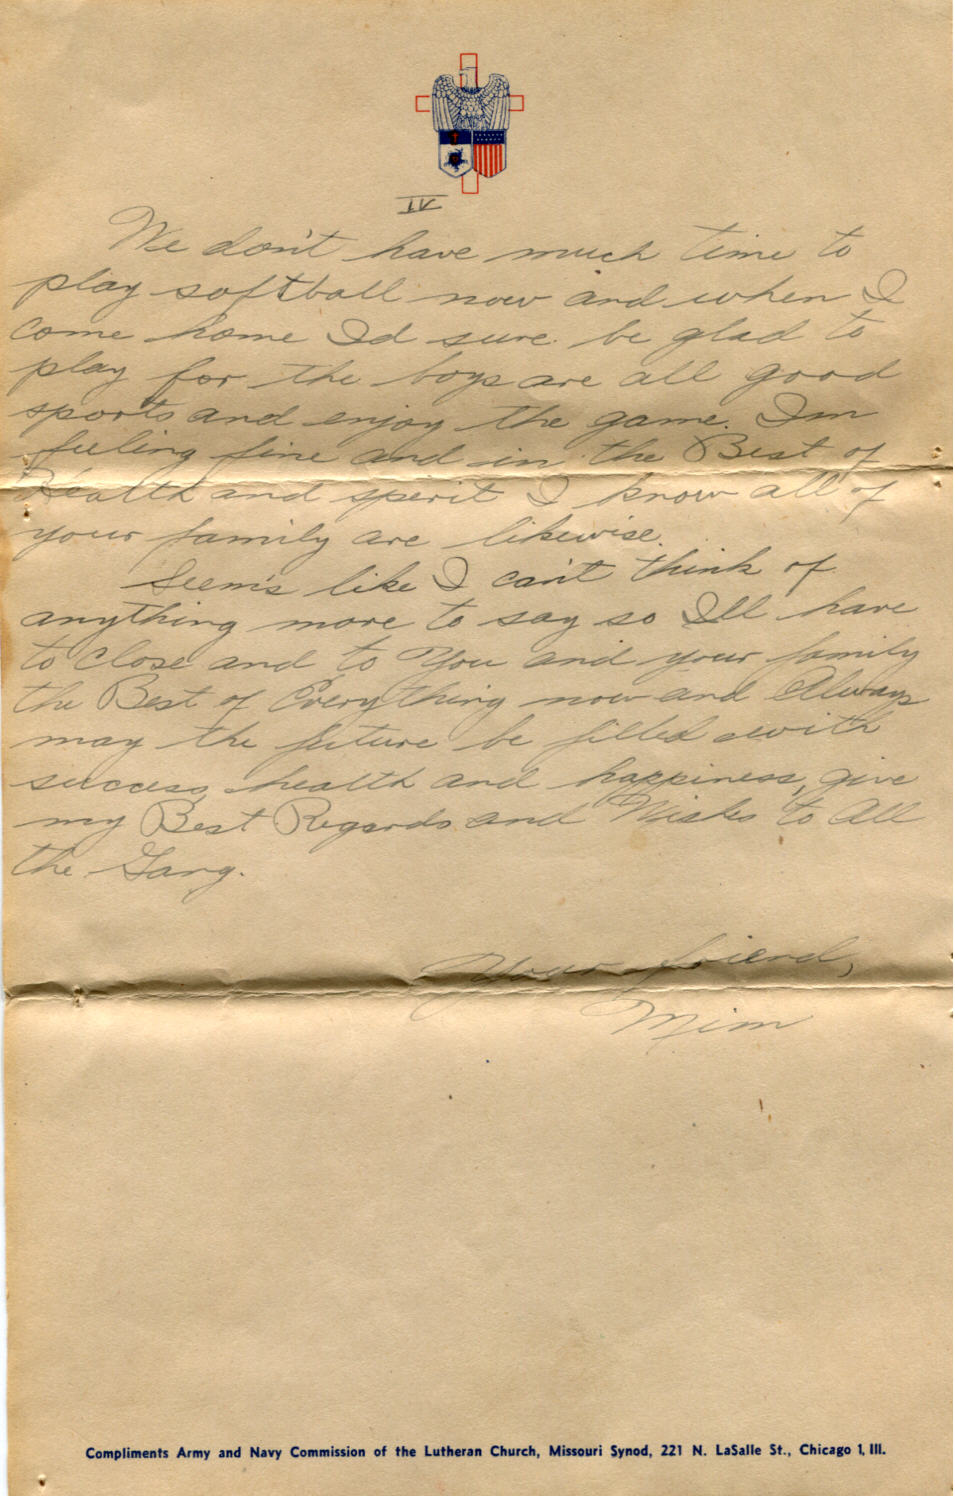 IV
We don't have much time to
play softball now and when I
come home Id sure be glad to
play for the boys are all good
sports and enjoy the game. Im
feeling fine and in the Best of
Health and sperit I know all of
your family are likewise.
Seem's like I can't think of
anything more to say so Ill have
to close and to You and your family
the Best of Everything now and Always
may the future be filled with
success, health and happiness, give
my Best Regards and Wishes to All
the Gang.
Your friend,
Mim
Compliments Army and Navy Commission of the Lutheran Church, Missouri Synod, 221 N. LaSalle St., Chicago 1, Ill.